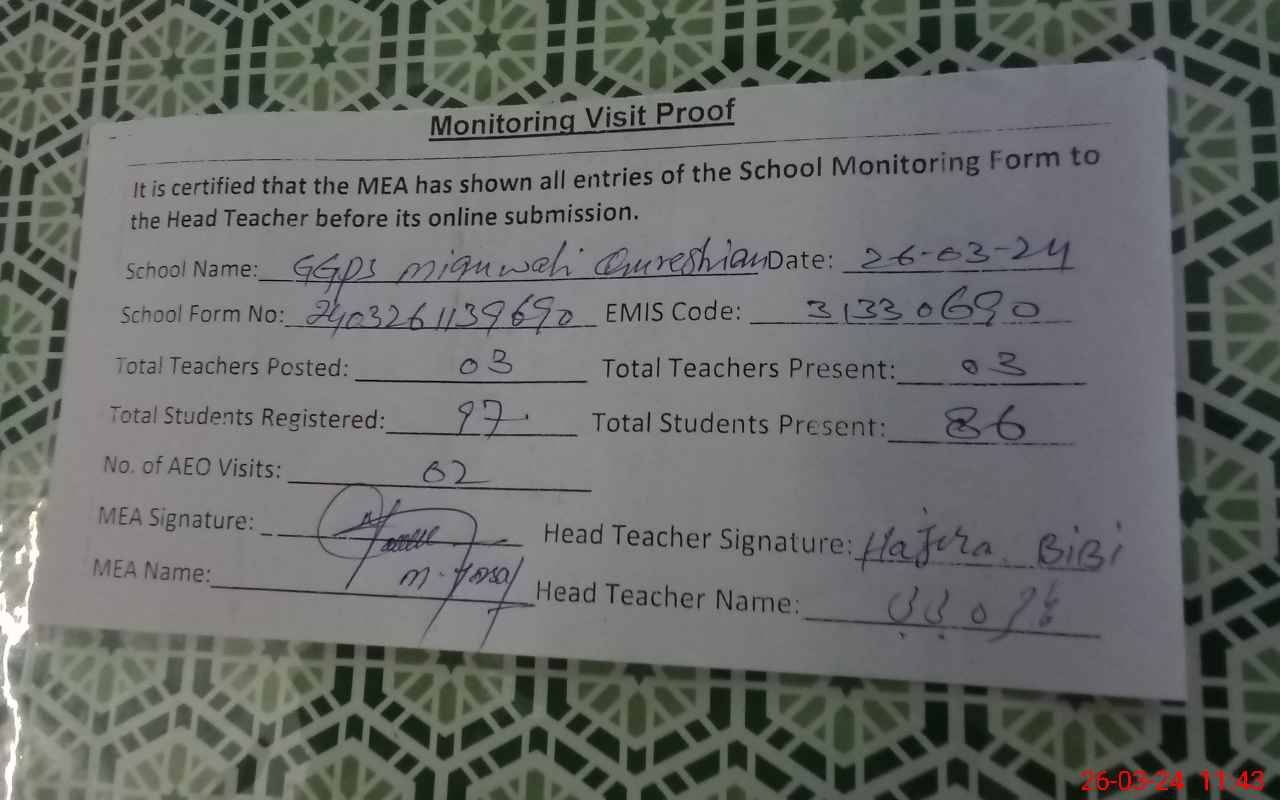 Monitoring Visit Proof
It is certified that the MEA has shown all entries of the School Monitoring Form to
the Head Teacher before its online submission.
School Name: GGPS Mianwali Qureshian Date: 26-03-24
School Form No: 2403261139690 EMIS Code: 31330690
Total Teachers Posted: 03 Total Teachers Present: 03
Total Students Registered: 97 Total Students Present: 86
No. of AEO Visits: 02
MEA Signature: Head Teacher Signature: Hajra BiBi
MEA Name: M. Head Teacher Name:
26-03-24 11:43